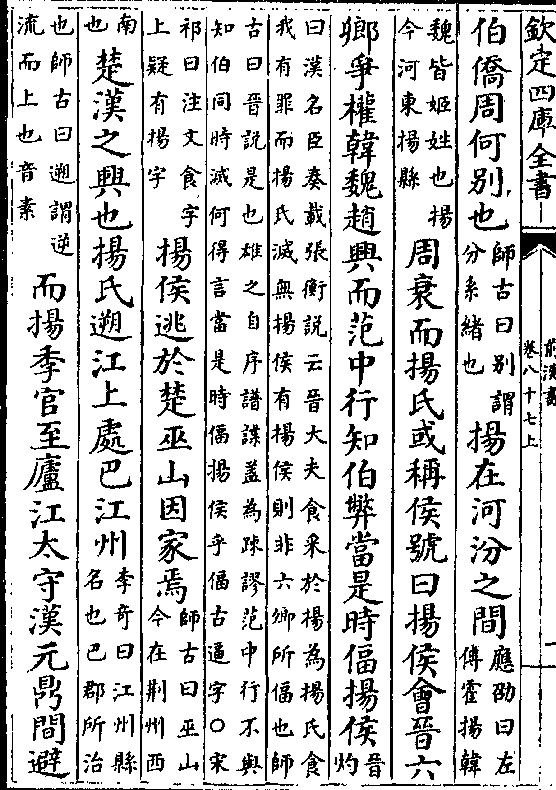 欽定四庫全書
前漢書
卷八十七上
一
伯僑周何別也師古曰別謂分系緒也揚在河汾之間應劭曰左傳霍揚韓
魏皆姬姓也揚今河東揚縣周衰而揚氏或稱侯號曰揚侯會晉六
卿爭權韓魏趙興而范中行知伯弊當是時偪揚侯晉灼
曰漢名臣奏載張衡說云晉大夫食采於揚為揚氏食
我有罪而揚氏滅無揚侯有揚侯則非六卿所偪也師
古曰晉說是也雄之自序譜諜蓋為疎謬范中行不與
知伯同時滅何得言當是時偪揚侯乎偪古逼字〇宋
祁曰注文食字上疑有揚字揚侯逃於楚巫山因家焉師古曰巫山今在荆州西
南也楚漢之興也揚氏遡江上處巴江州李奇曰江州縣名也巴郡所治
也師古曰遡謂逆流而上也音素而揚季官至廬江太守漢元鼎間避